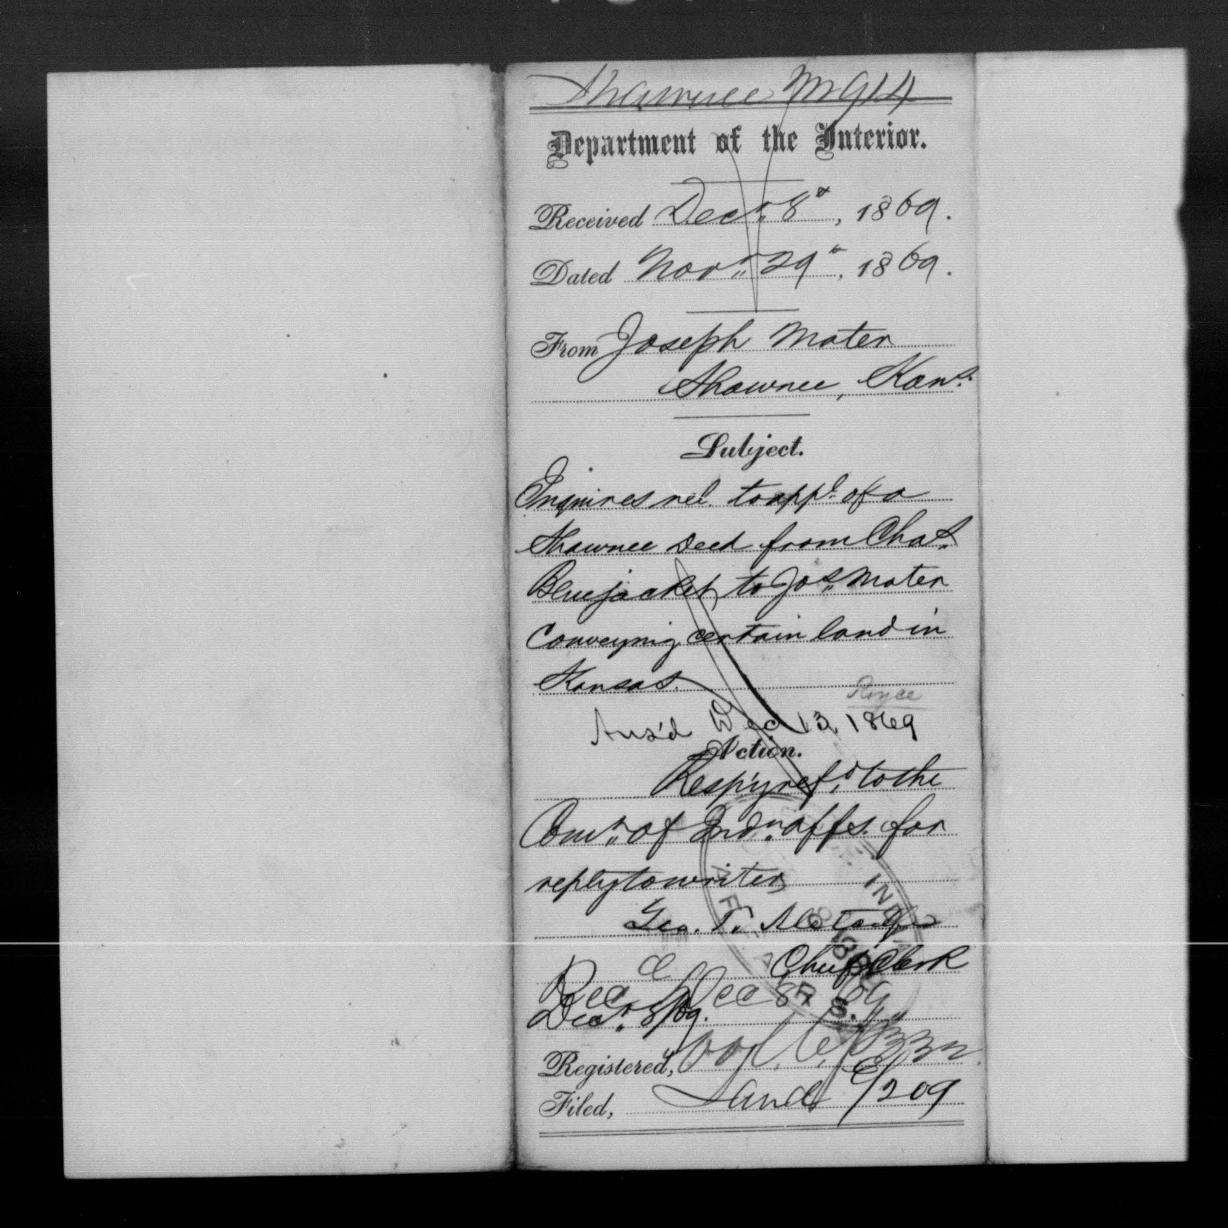 Shawnee M914
Department of the Interior.
Received Decr. 8th, 1869.
Dated Novr. 29th, 1869.
From Joseph Mater
Shawnee, Kans.
Subject.
Inquires rel. to appl. of a
Shawnee Deed from Chas.
Bluejacket, to Jos. Mater
Conveying certain land in
Kansas.
Royce
Ans'd Dec 13, 1869
Action.
Resp'y refd. to the
Comr. of Indn. affs. for
reply to writer
Geo. T.
Chief Clerk
Rec Dec 8/69
Decr. 8/69.
Registered,
Filed, Land 6/209